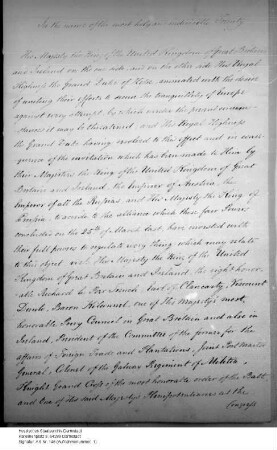 In the name of the most holy and undivided Trinity
His Majesty the King of the United Kingdom of Great Britain
and Ireland on the one side and on the other side His Royal
Highness the Grand Duke of Hesse animated with the desire
of uniting their efforts to secure the tranquillity of Europe
against every attempt by which under the present circum-
stances it may be threatened and His Royal Highness
the Grand Duke having resolved to this effect and in conse-
quence of the invitation which has been made to Him by
their Majesties the King of the United Kingdom of Great
Britain and Ireland, the Emperor of Austria, the
Emperor of all the Russias and His Majesty the King of
Prussia to accede to the alliance which these four Powers
concluded on the 25th of March last, have invested with
their full power to regulate every thing which may relate
to this object viz. His Majesty the King of the United
Kingdom of Great Britain and Ireland, the right honor-
able Richard le Poer Trench Earl of Clancarty, Viscount
Dunlo, Baron Kilconnel, one of His Majesty's most
honorable Privy Council in Great Britain and also in
Ireland, President of the Committee of the former for the
affairs of Foreign Trade and Plantations, Joint Post Master
General, Colonel of the Galway Regiment of Militia,
Knight Grand Cross of the most honorable order of the Bath
and one of His said Majesty's Plenipotentiaries at the
Congress
Hessisches Staatsarchiv Darmstadt